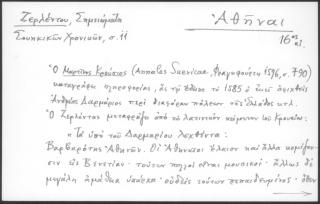 Ζερλέντου, Σημειώματα
Σουηκικῶν Χρονικῶν, σ. 11
Ἀθῆναι
16 αἰ.
Ὁ Μαρτῖνος Κρούσιος (Annales Suevicae, Φραγκφούρτη 1596, σ. 790)
καταγράφει πληροφορίες, ἃς τῷ ἔδωσε τὸ 1585 ὁ
Ἀνδρέας Δαρμάριος περὶ διαφόρων πόλεων τῆς Ἑλλάδος κτλ.
Ὁ Ζερλέντης μεταφράζει ἀπὸ τὸ λατινικὸν κείμενον τοῦ Κρουσίου:
«Τὰ ὑπὸ τοῦ Δαρμαρίου λεχθέντα:
Βαρβαρότης Ἀθηνῶν. Οἱ Ἀθηναῖοι ἔλαιον καὶ ἄλλα κομίζου-
σιν εἰς Βενετίαν· τούτων πολλοὶ εἶναι μουσικοί· ἄλλως δὲ
μεγάλη ἀμάθεια ὑπάρχει· οὐδεὶς τούτων πεπαιδευμένος·